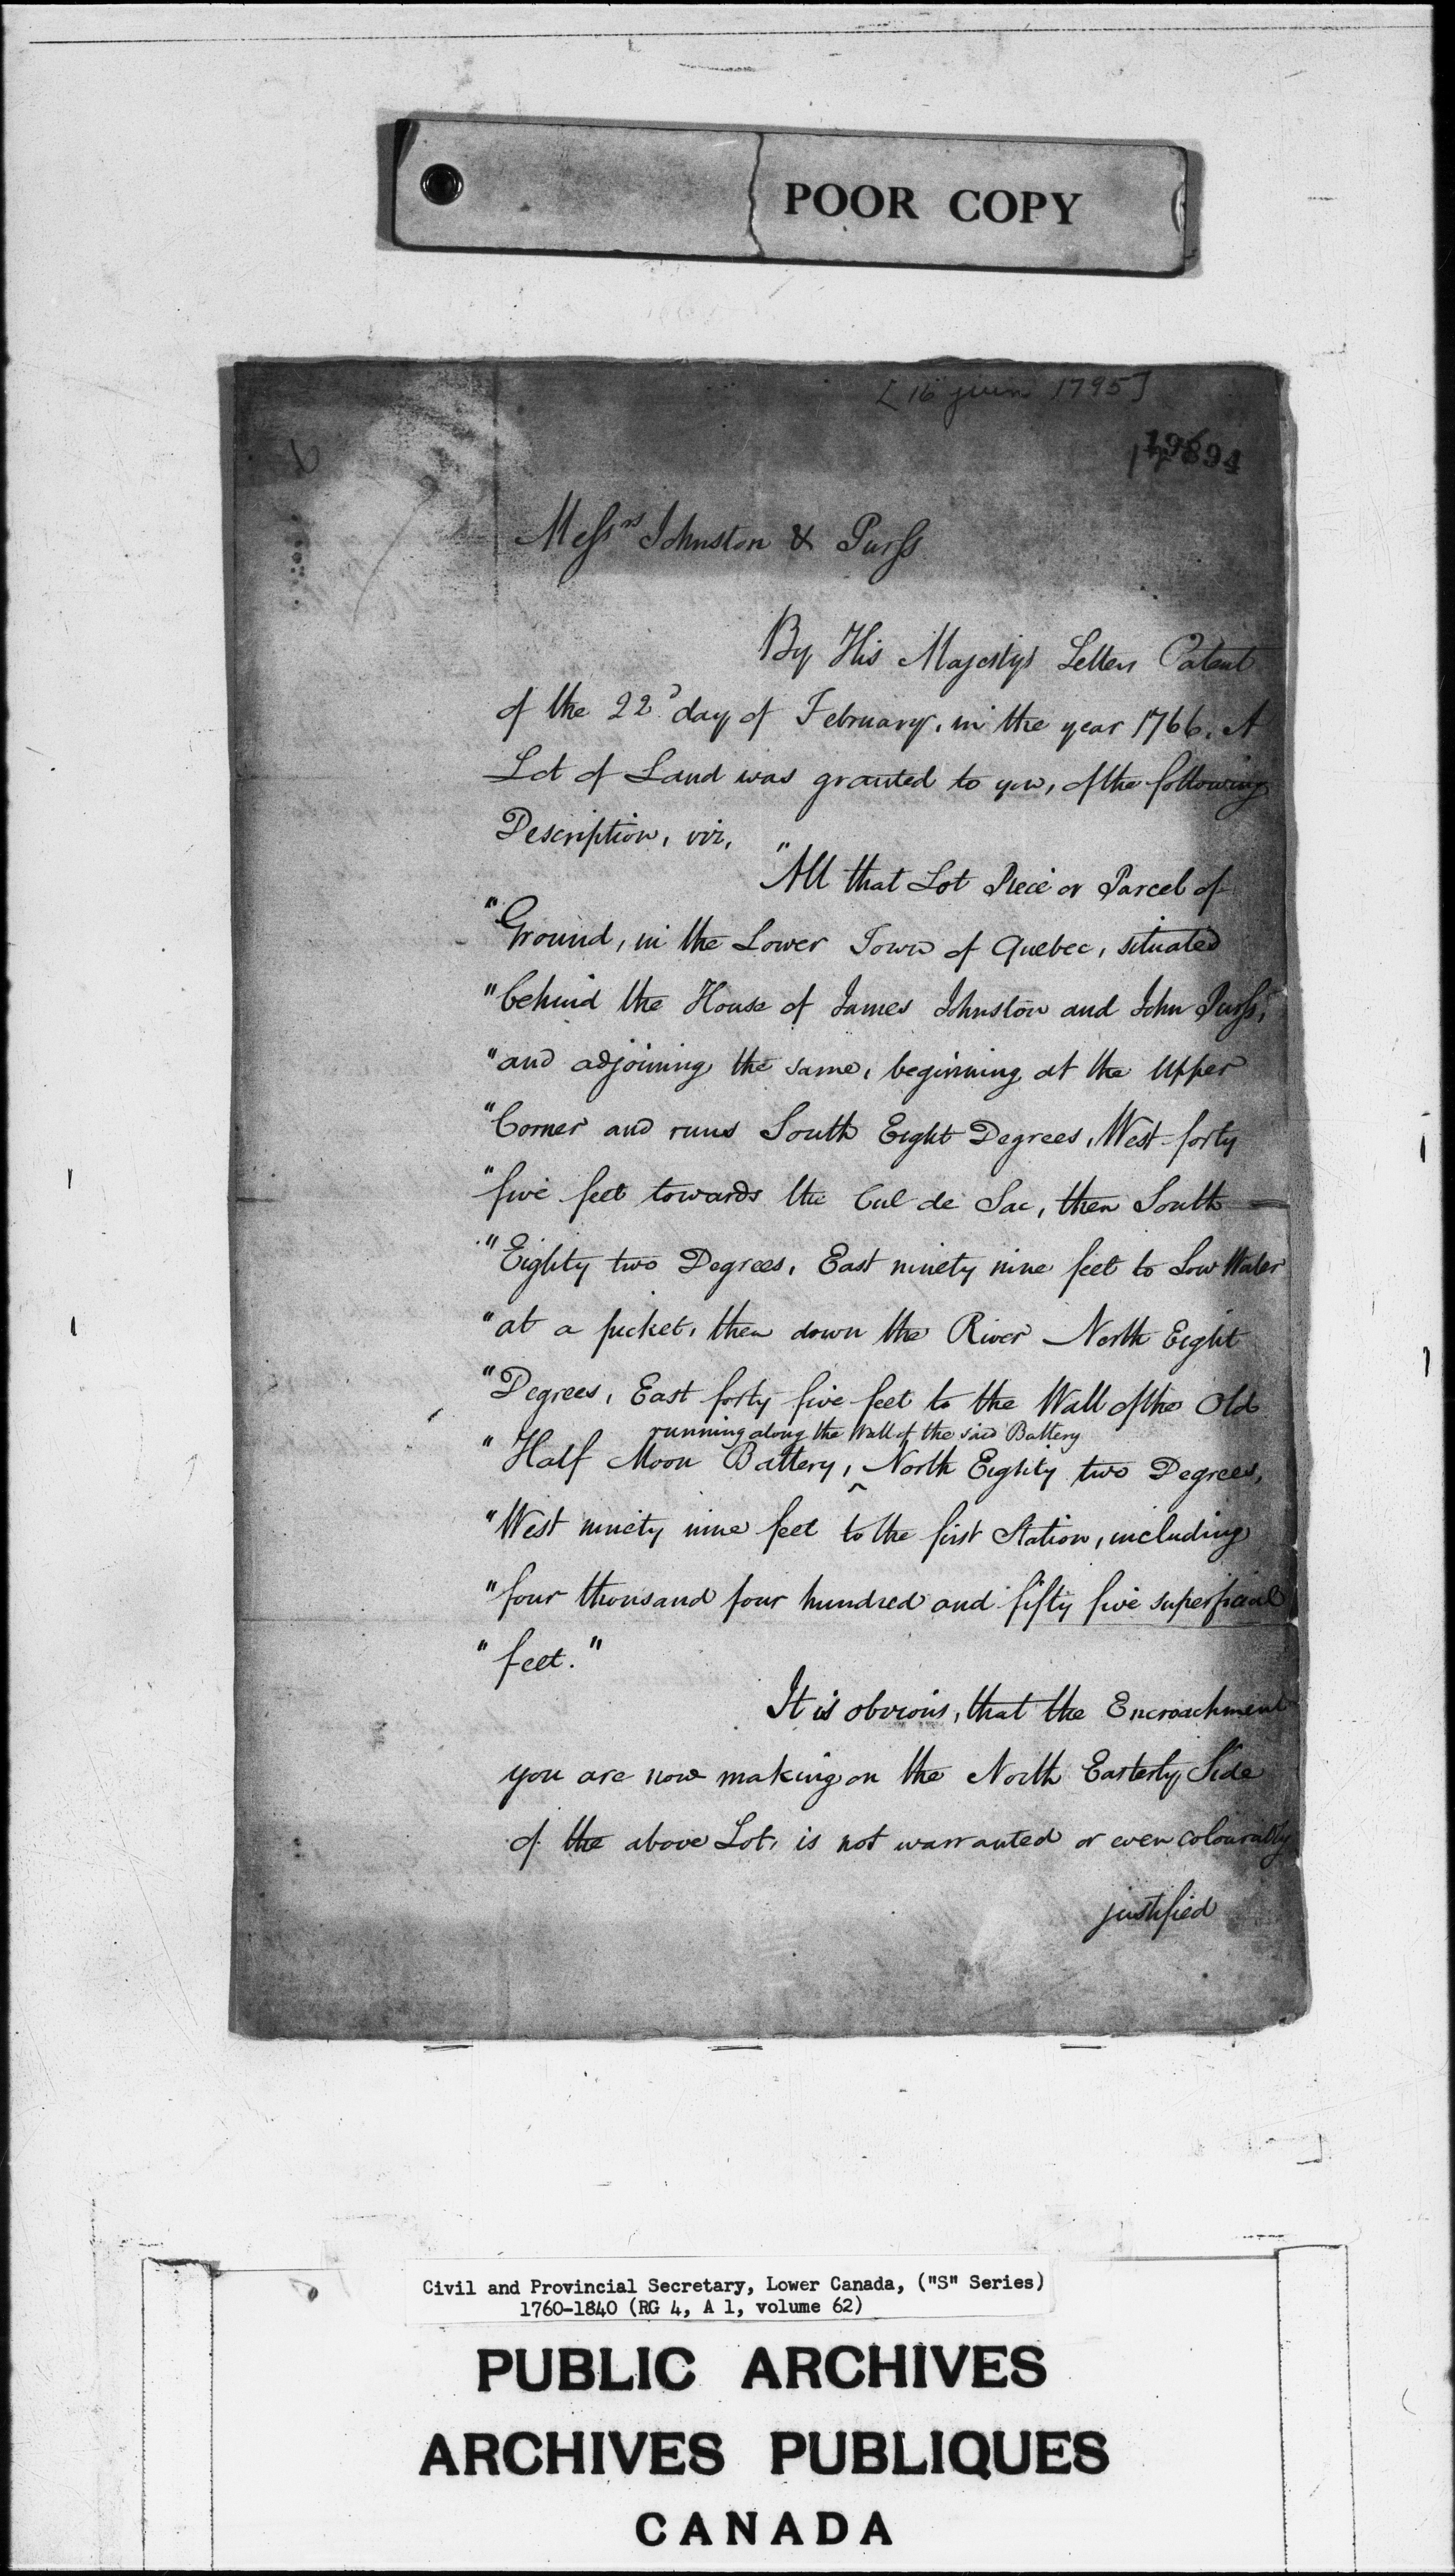 POOR COPY
[16 juin 1795]
19894
Messrs Johnston & Purss
By His Majestys Letters Patent
of the 22d day of February, in the year 1766. A
Lot of Land was granted to you, of the following
Description, viz,
"All that Lot Piece or Parcel of
"Ground, in the Lower Town of Quebec, situated
"behind the House of James Johnston and John Purss,
"and adjoining the same, beginning at the Upper
"Corner and runs South Eight Degrees, West forty
"five feet towards the Cul de Sac, then South
"Eighty two Degrees, East ninety nine feet to Low Water
"at a picket, then down the River North Eight
"Degrees, East forty five feet to the Wall of the Old
running along the Wall of the said Battery
"Half Moon Battery, ^ North Eighty two Degrees,
"West ninety nine feet to the first Station, including
"four thousand four hundred and fifty five superficial
"feet."
It is obvious, that the Encroachment
you are now making on the North Easterly Side
of the above Lot, is not warranted or even colourably
justified
Civil and Provincial Secretary, Lower Canada, ("S" Series)
1760-1840 (RG 4, A 1, volume 62)
PUBLIC ARCHIVES
ARCHIVES PUBLIQUES
CANADA